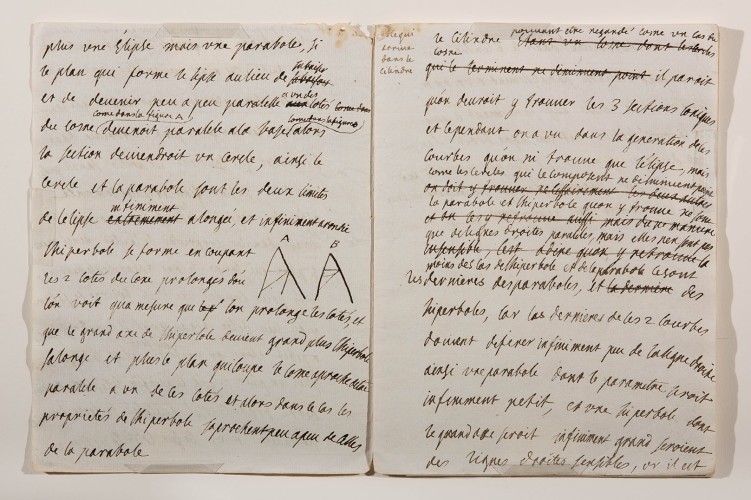 plus une Elipse mais une parabole, si
le plan qui forme lelipse au lieu de sabaisser
et de devenir peu a peu parallele a un des cotés
du cosne come dans la figure A) devenoit paralele ala base alors
la section deviendroit un cercle, ainsi le
cercle et la parabole sont les deux limites
de lelipse infiniment extremement alongée, et infiniment
l'hiperbole se forme en coupant
les 2 cotés du cosne prolonges dou
lon voit qua mesure que lon prolonge les cotés, et
que le grand axe de l'hiperbole devient grand plus l'hiperbole
salonge et plus le plan qui coupe le cosne aproche
paralele a un de ces cotés et alors dans ce cas les
proprietés de l'hiperbole saprochent peu a peu de celles
de la parabole
A
B
ce qui
arrive
dans le
cilindre
le cilindre pouvant etre regardé come un cas du
cosne
qui le terminent ne diminuent point il paroit
qu'on devroit y trouver les 3 sections coniques
et cependant on a vu dans la generation de ces
courbes qu'on ni trouve que lelipse, mais
come les cercles qui le composent ne diminuent
la parabole et l'hiperbole quon y trouve ne sont
que de lignes droites paralleles, mais elles n'en sont pas
moins des cas de l'hiperbole et de la parabole ce sont
les dernieres des paraboles, et la derniere des
hiperboles, car les dernieres de ces 2 courbes
doivent diferer infiniment peu de la ligne droite
ainsi une parabole dont le parametre seroit
infiniment petit, et une hiperbole dont
le grand axe seroit infiniment grand seroient
des lignes droites sensibles, or il est